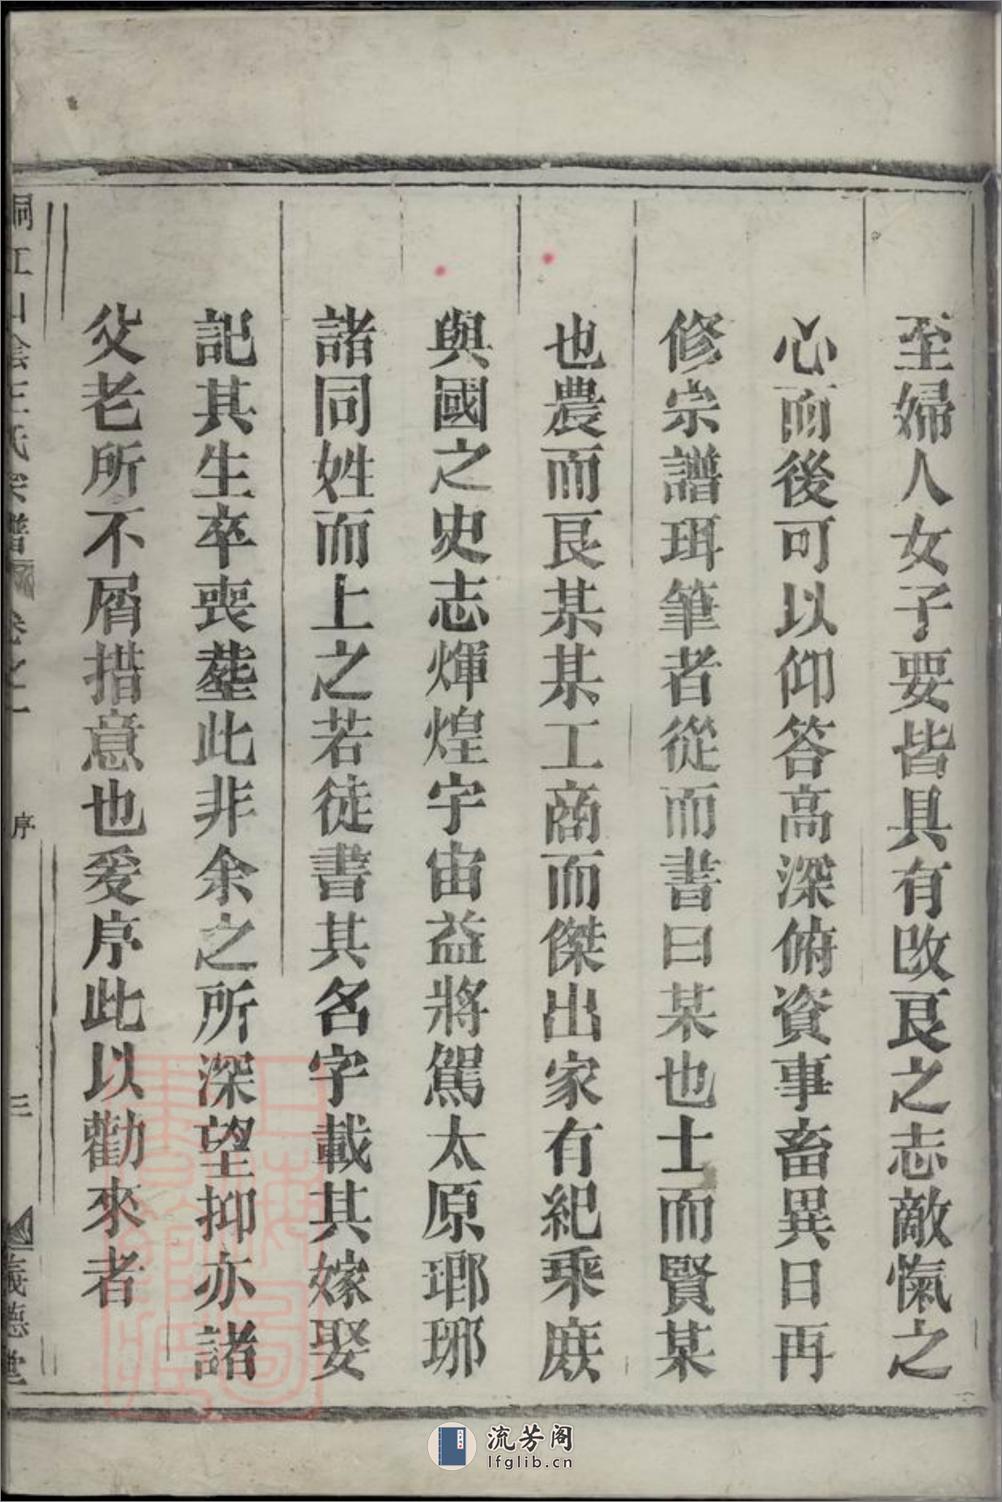 至婦人女子要皆具有改良之志敵愾之
心而後可以仰答高深俯資事畜異日再
修宗譜珥筆者從而書曰某也士而賢某
也農而良某某工商而傑出家有紀乘庶
與國之史志煇煌宇宙益將駕太原瑯琊
諸同姓而上之若徒書其名字載其嫁娶
記其生卒喪塟此非余之所深望抑亦諸
父老所不屑措意也爰序此以勸來者
王氏宗譜 卷之一 序 三 義德堂
流芳阁
lfglib.cn